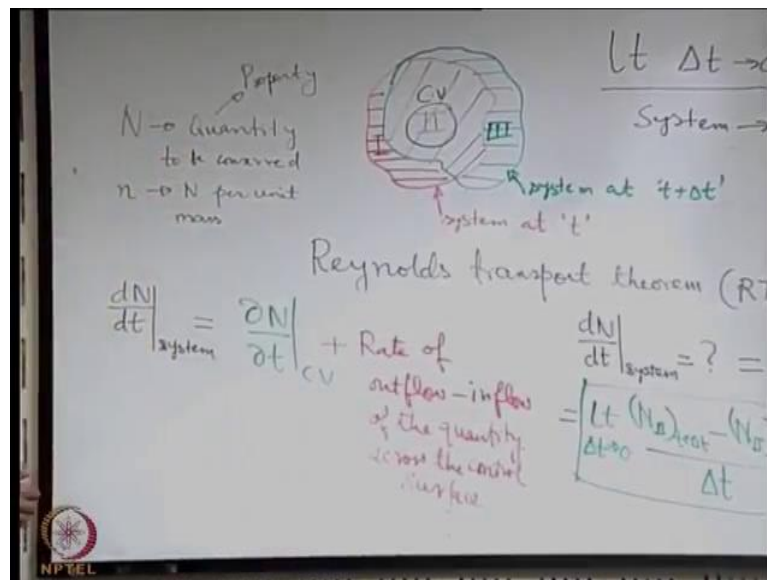 Property
N → Quantity
to be conserved
n → N per unit
mass
CV
I
II
III
system at 't+Δt'
system at 't'
lt Δt →
System →
Reynolds transport theorem (RT
dN/dt|system = ∂N/∂t|CV + Rate of
outflow-inflow
of the quantity
across the control
surface
dN/dt|system = ? =
= lt Δt→0 (NII)t+Δt - (NII) / Δt
NPTEL